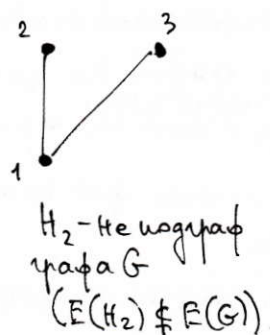 2
3
1
H₂ – не подграф
графа G
(E(H₂) ⊈ E(G))